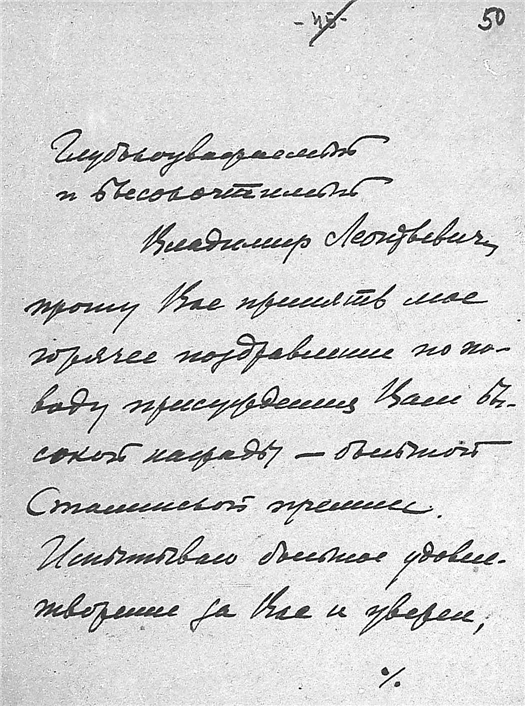 -48-
50
Глубокоуважаемый
и высокочтимый
Владимир Леонтьевич,
прошу Вас принять мое
горячее поздравление по по-
воду присуждения Вам вы-
сокой награды — большой
Сталинской премии.
Испытываю большое удовле-
творение за Вас и уверен,
%